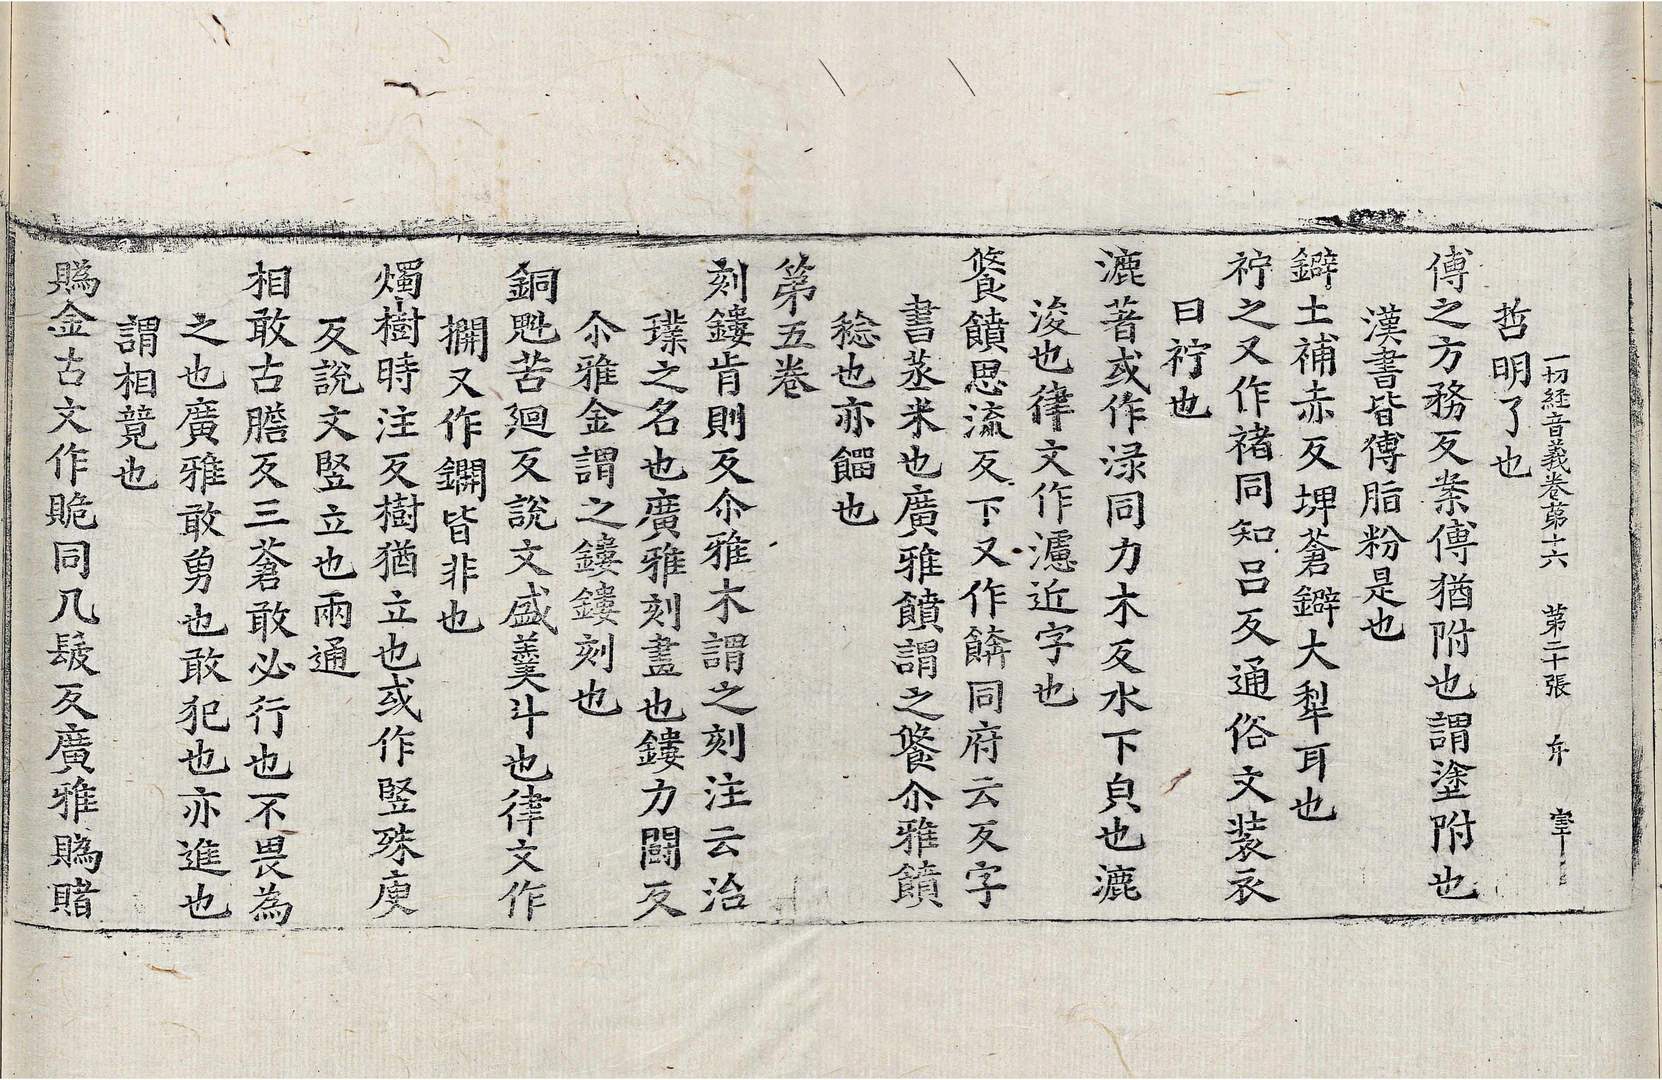 一切經音義卷第十六 第二十張 弁
哲明了也
傅之方務反案傅猶附也謂塗附也
漢書皆傅脂粉是也
鐴土補赤反埤蒼鐴大犁耳也
䘢之又作褚同知呂反通俗文裝衣
曰䘢也
漉著或作渌同力木反水下皃也漉
浚也律文作濾近字也
餐饙思流反下又作餴同府云反字
書蒸米也廣雅饙謂之餐尒雅饙
稔也亦餾也
第五卷
刻鏤肯則反尒雅木謂之刻注云治
璞之名也廣雅刻畫也鏤力鬪反
尒雅金謂之鏤鏤刻也
銅魁苦迴反說文盛羹斗也律文作
㩰又作鑎皆非也
燭樹時注反樹猶立也或作竪殊庾
反說文竪立也兩通
相敢古膽反三蒼敢必行也不畏為
之也廣雅敢勇也敢犯也亦進也
謂相競也
賭金古文作貱同凡髲反廣雅賭賭